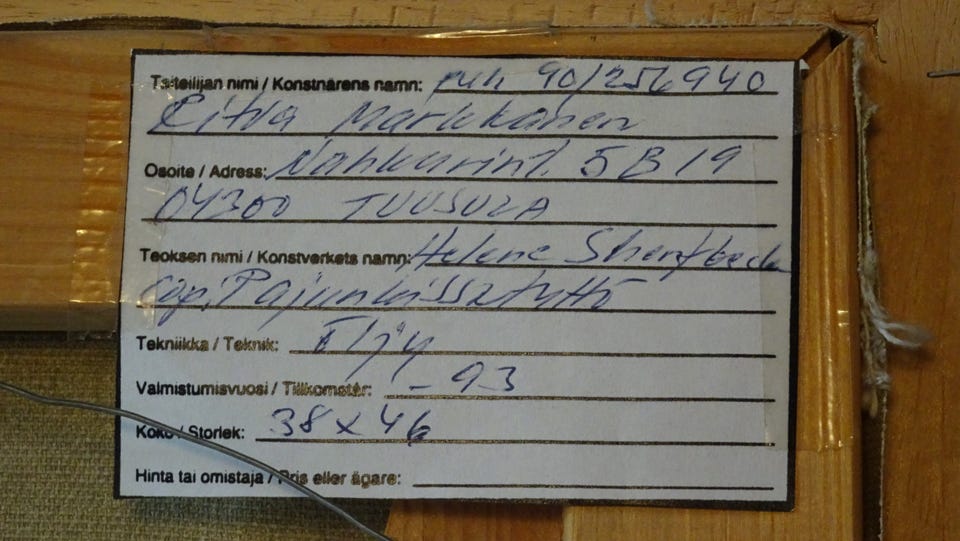 Taiteilijan nimi / Konstnärens namn: puh 90/256940
Ritva Markkanen
Osoite / Adress: Nahkurint. 5 B 19
04300 TUUSULA
Teoksen nimi / Konstverkets namn: Helene Sherfbeck
Pajunkissatyttö
Tekniikka / Teknik: Öljy
Valmistumisvuosi / Tillkomstår: -93
Koko / Storlek: 38 x 46
Hinta tai omistaja / Pris eller ägare: